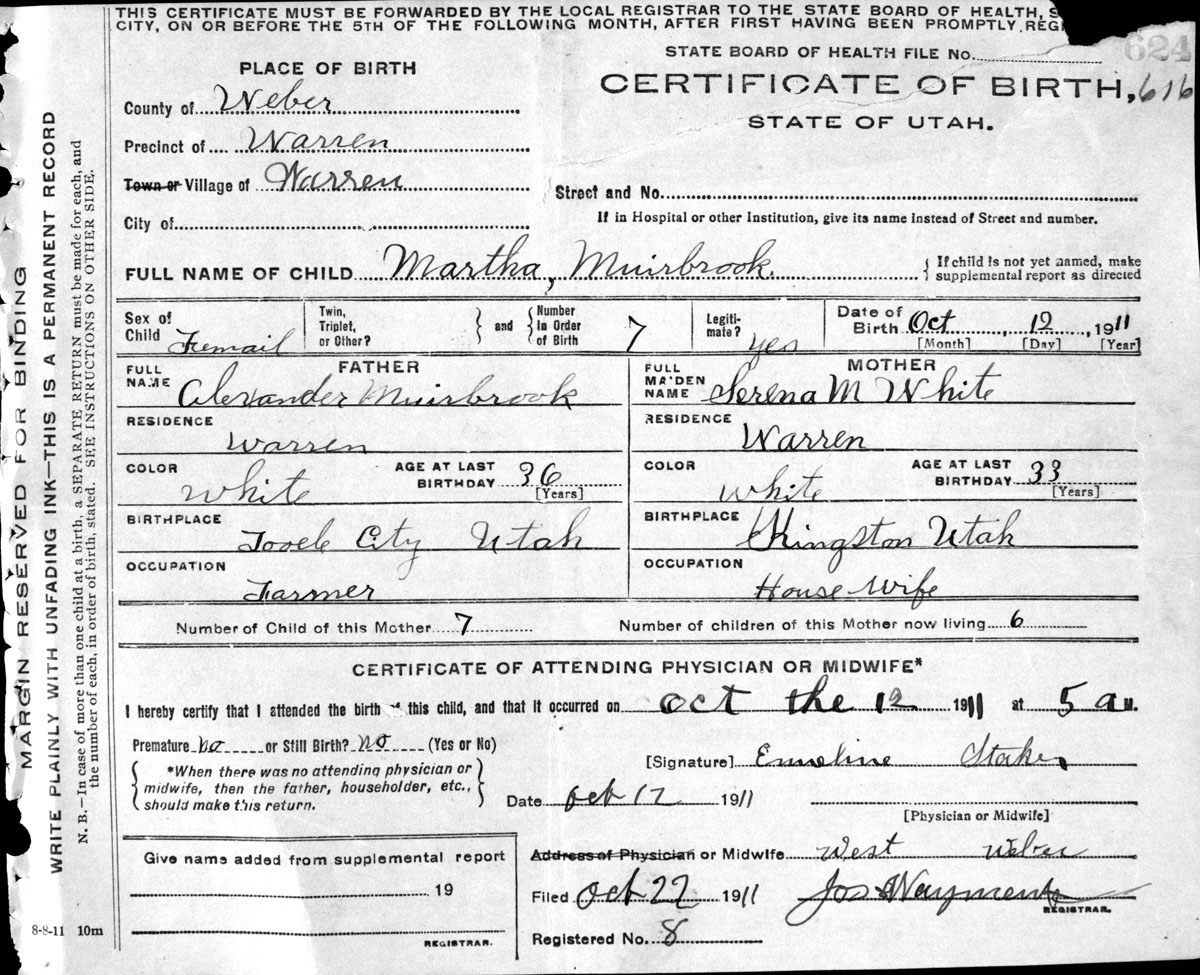 THIS CERTIFICATE MUST BE FORWARDED BY THE LOCAL REGISTRAR TO THE STATE BOARD OF HEALTH, S
CITY, ON OR BEFORE THE 5TH OF THE FOLLOWING MONTH, AFTER FIRST HAVING BEEN PROMPTLY REGI
624
STATE BOARD OF HEALTH FILE No.
PLACE OF BIRTH
CERTIFICATE OF BIRTH, 616
STATE OF UTAH.
County of Weber
Precinct of Warren
Town or Village of Warren
Street and No.
City of
If in Hospital or other Institution, give its name instead of Street and number.
FULL NAME OF CHILD Martha, Muirbrook. { If child is not yet named, make
supplemental report as directed
Sex of Child Femail
Twin, Triplet, or Other? } and { Number In Order of Birth 7
Legiti-mate? yes
Date of Birth Oct, 12, 1911
[Month] [Day] [Year]
FATHER
MOTHER
FULL NAME Alexander Muirbrook
FULL MAIDEN NAME Serena M White
RESIDENCE Warren
RESIDENCE Warren
COLOR White AGE AT LAST BIRTHDAY 36 [Years]
COLOR White AGE AT LAST BIRTHDAY 33 [Years]
BIRTHPLACE Tooele City Utah
BIRTHPLACE Kingston Utah
OCCUPATION Farmer
OCCUPATION House Wife
Number of Child of this Mother 7 Number of children of this Mother now living 6
CERTIFICATE OF ATTENDING PHYSICIAN OR MIDWIFE*
I hereby certify that I attended the birth of this child, and that it occurred on oct the 12 1911 at 5 a M.
Premature no or Still Birth? no (Yes or No)
{ *When there was no attending physician or
midwife, then the father, householder, etc.,
should make this return. }
[Signature] Emeline Staker
Date Oct 12 1911
[Physician or Midwife]
Give name added from supplemental report
19
REGISTRAR.
Address of Physician or Midwife West Weber
Filed Oct 22 1911 Jos Wayment
REGISTRAR.
Registered No. 8
8-8-11 10m
MARGIN RESERVED FOR BINDING
WRITE PLAINLY WITH UNFADING INK—THIS IS A PERMANENT RECORD
N. B.—In case of more than one child at a birth, a SEPARATE RETURN must be made for each, and
the number of each, in order of birth, stated. SEE INSTRUCTIONS ON OTHER SIDE.